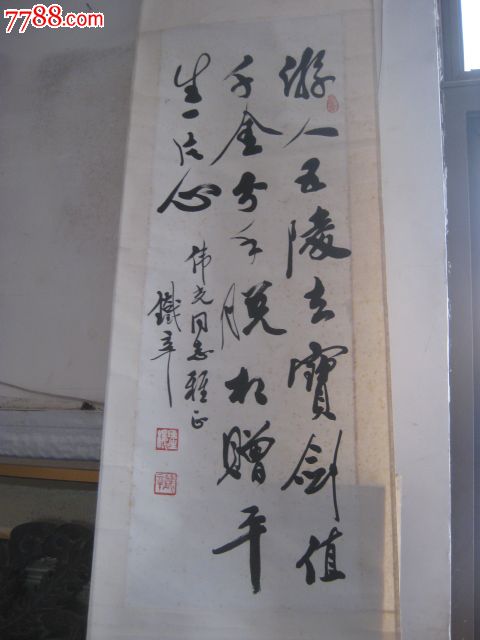 7788.com
游人五陵去寶劍值
千金分手脱相贈平
生一片心
伟光同志雅正
鐵辛